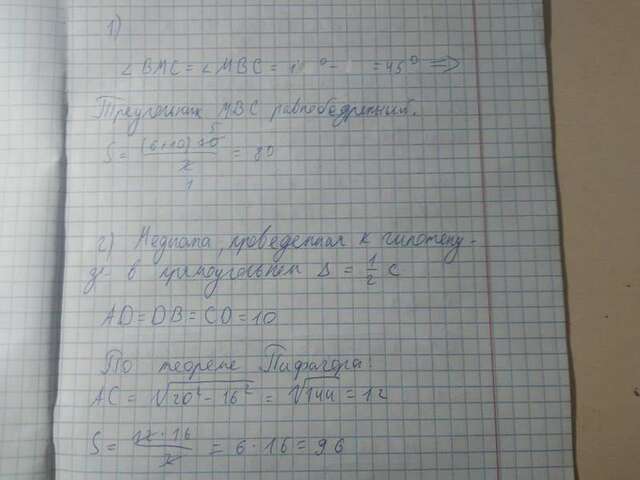 1)
∠BMC = ∠MBC = = 45° ⇒
Треугольник MBC равнобедренный.
S = (6+10)·10/2 = 80
5
1
2) Медиана, проведенная к гипотену-
зе в прямоугольном Δ = 1/2 c
AD = DB = CD = 10
По теореме Пифагора:
AC = √20² - 16² = √144 = 12
S = 12·16/2 = 6·16 = 96